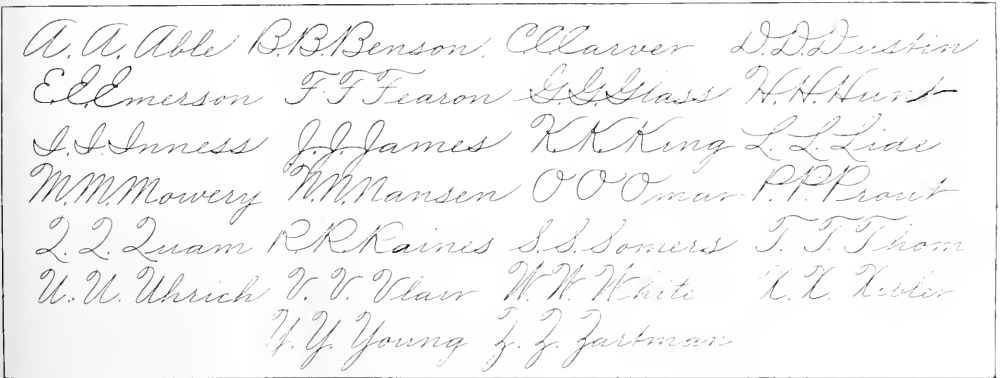 A. A. Able B. B. Benson. C C Carver D. D. Dustin
E. E. Emerson F. F. Fearon G. G. Glass H. H. Hunt
I. I. Inness J. J. James K. K. King L. L. Lide
M. M. Mowery N. N. Nansen O O Omar P. P. Prout
Q. Q. Quam R. R. Raines S. S. Somers T. T. Thom
U. U. Uhrich V. V. Vlair W. W. White X. X. Xibler
Y. Y. Young Z. Z. Zartman